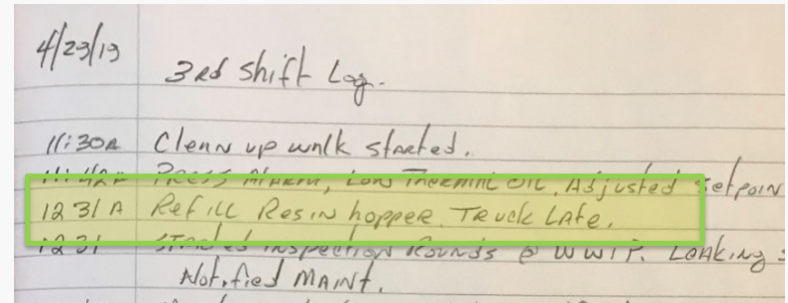 4/23/19
3rd Shift Log.
11:30A Clean up walk started.
Press Alarm, Low Thermal Oil, Adjusted Setpoin
1231 A Refill Resin hopper. Truck Late.
1231 Started inspection Rounds @ WWTP. Leaking
Notified MAINT.